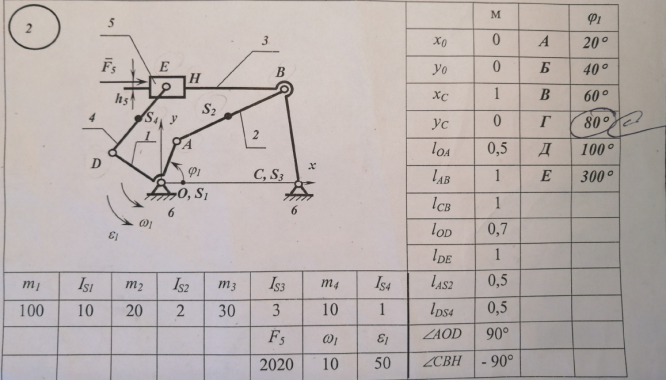 2
5
3
F̄5
E
H
B
h5
S4
y
S2
4
1
A
2
D
φ1
x
C, S3
O, S1
ω1
6
6
ε1
м
φ1
x0 0 А 20°
y0 0 Б 40°
xC 1 В 60°
yC 0 Г 80°
lOA 0,5 Д 100°
lAB 1 Е 300°
lCB 1
lOD 0,7
lDE 1
lAS2 0,5
lDS4 0,5
∠AOD 90°
∠CBH - 90°
m1 IS1 m2 IS2 m3 IS3 m4 IS4
100 10 20 2 30 3 10 1
F5 ω1 ε1
2020 10 50